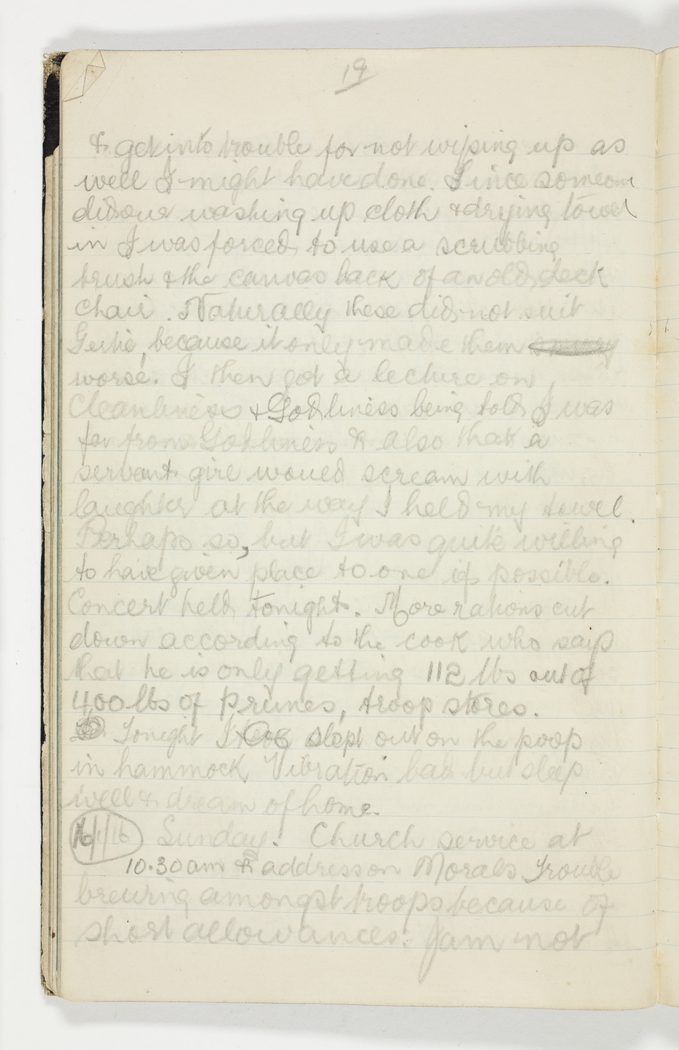 19
& get into trouble for not wiping up as
well I might have done. Since someone
did our washing up cloth & drying towel
in I was forced to use a scrubbing
brush & the canvas back of an old deck
chair. Naturally these did not suit
Gertie, because it only made them
worse. I then got a lecture on
Cleanliness & Godliness being told I was
far from Godliness & also that a
servant girl would scream with
laughter at the way I held my towel.
Perhaps so, but I was quite willing
to have given place to one if possible.
Concert held tonight. More rations cut
down according to the cook who said
that he is only getting 112 lbs out of
400 lbs of prunes, troop stores.
Tonight I slept out on the poop
in hammock. Vibration bad but sleep
well & dream of home.
16/1/16 Sunday. Church service at
10.30 am & address on Morals Trouble
brewing amongst troops because of
short allowances. Jam not